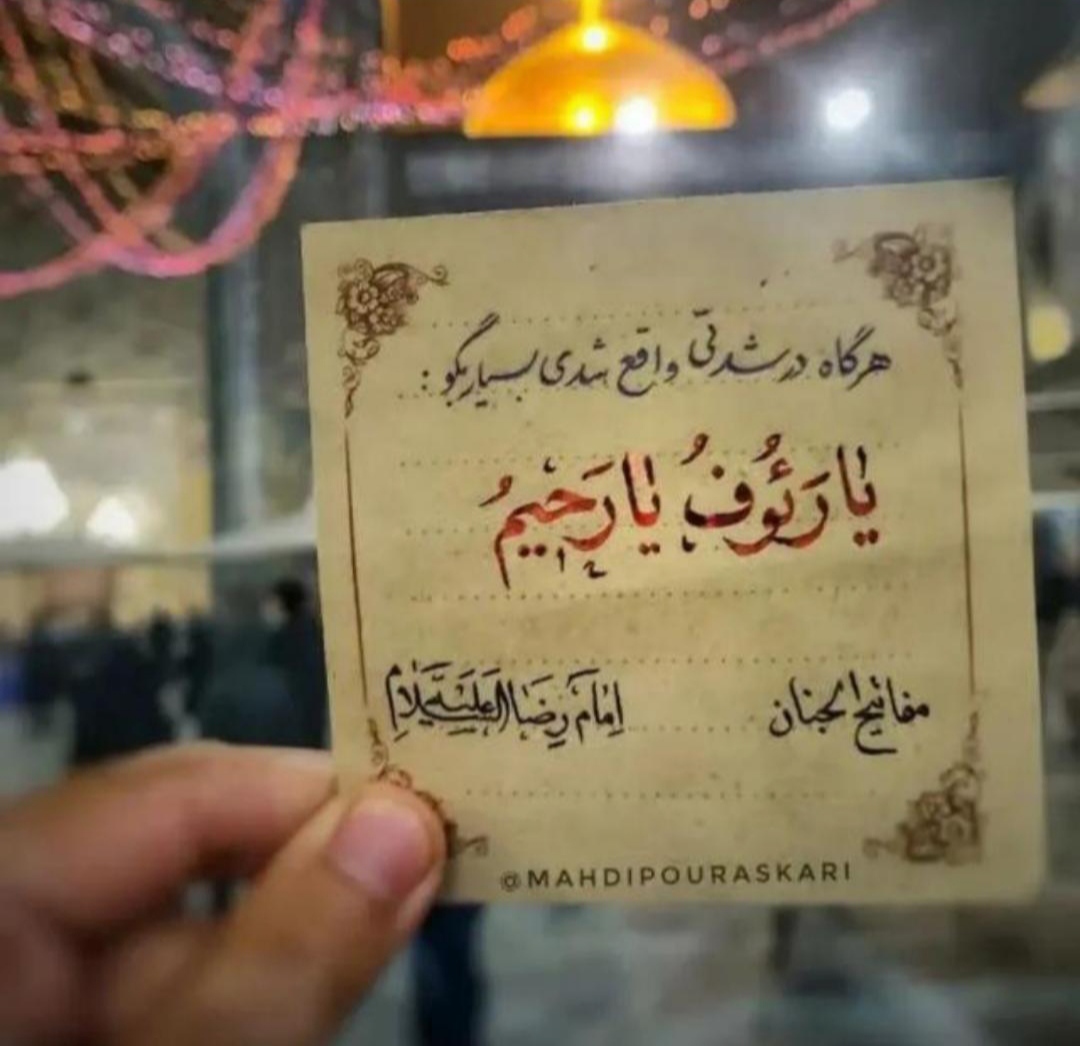 هرگاه در شدتی واقع شدی بسیار بگو :
یا رَئُوفُ یا رَحیمُ
مفاتیح الجنان امام رضا علیه السلام
@MAHDIPOURASKARI